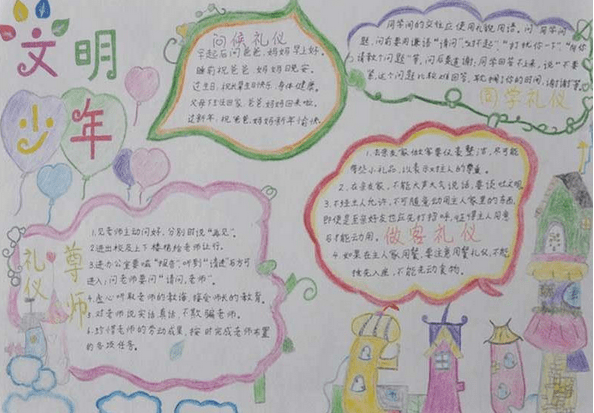 文明
少年
问候礼仪
早起后问爸爸、妈妈早上好。
睡前祝爸爸、妈妈晚安。
过生日,祝长辈生日快乐,身体健康。
父母下班回家,爸爸、妈妈回来啦。
过新年,祝爸爸、妈妈新年愉快
同学间的交往应使用礼貌用语。问同学问
题,问前要用谦语“请问”、“对不起”、“打扰你一下”、
请教个问题”等,问后要道谢,同学回答不上来,说“不要
紧,这个问题比较难回答,耽搁了你的时间,谢谢”等
同学礼仪
1.去亲友家做客要仪表整洁,尽可能
带些小礼品,以表示对主人的尊重。
2.在亲友家,不能大声大气说话,要谈吐文明
3.不经主人允许,不可随意动用主人家里的东西,
即使是至亲好友也应先打招呼,征得主人同意
后才能动用。
做客礼仪
4.如果在主人家用餐,要注意用餐礼仪,不能
抢先入座,不能先动食物。
尊师
礼仪
1.见老师主动问好,分别时说“再见”。
2.进出校及上下楼梯给老师让行。
3.进办公室要喊“报告”,听到“请进”后方可
进入;问老师要问“请问,老师”。
4.虚心听取老师的教诲,接受师长的教育。
5.对老师说实话、真话,不欺骗老师。
6.珍惜老师的劳动成果,按时完成老师布置
的各项任务。